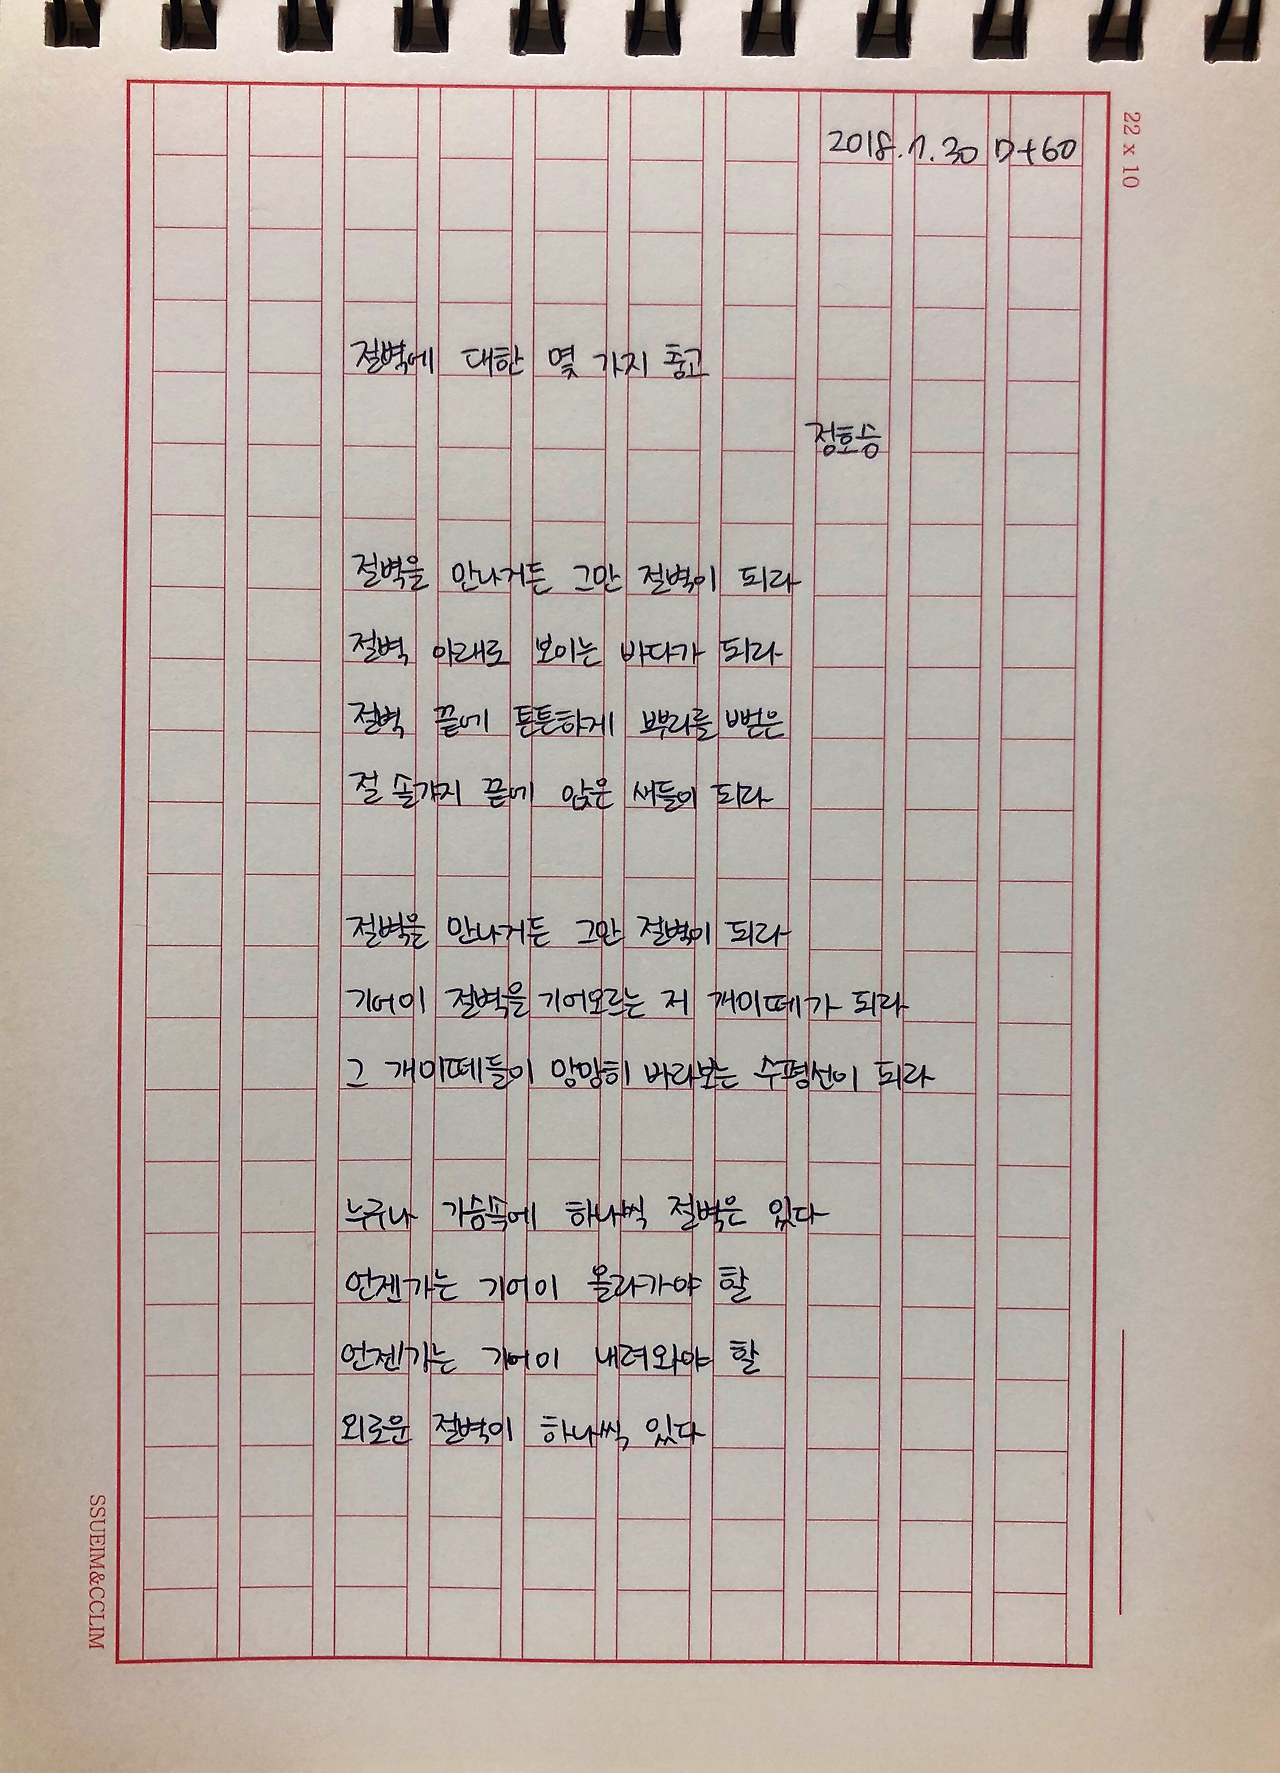 2018.7.30 D+60
22 x 10
절벽에 대한 몇 가지 충고
정호승
절벽을 만나거든 그만 절벽이 되라
절벽 아래로 보이는 바다가 되라
절벽 끝에 튼튼하게 뿌리를 뻗은
절 솔가지 끝에 앉은 새들이 되라
절벽을 만나거든 그만 절벽이 되라
기어이 절벽을 기어오르는 저 개미떼가 되라
그 개미떼들이 망망히 바라보는 수평선이 되라
누구나 가슴속에 하나씩 절벽은 있다
언젠가는 기어이 올라가야 할
언젠가는 기어이 내려와야 할
외로운 절벽이 하나씩 있다
SSUEIM&CCLIM